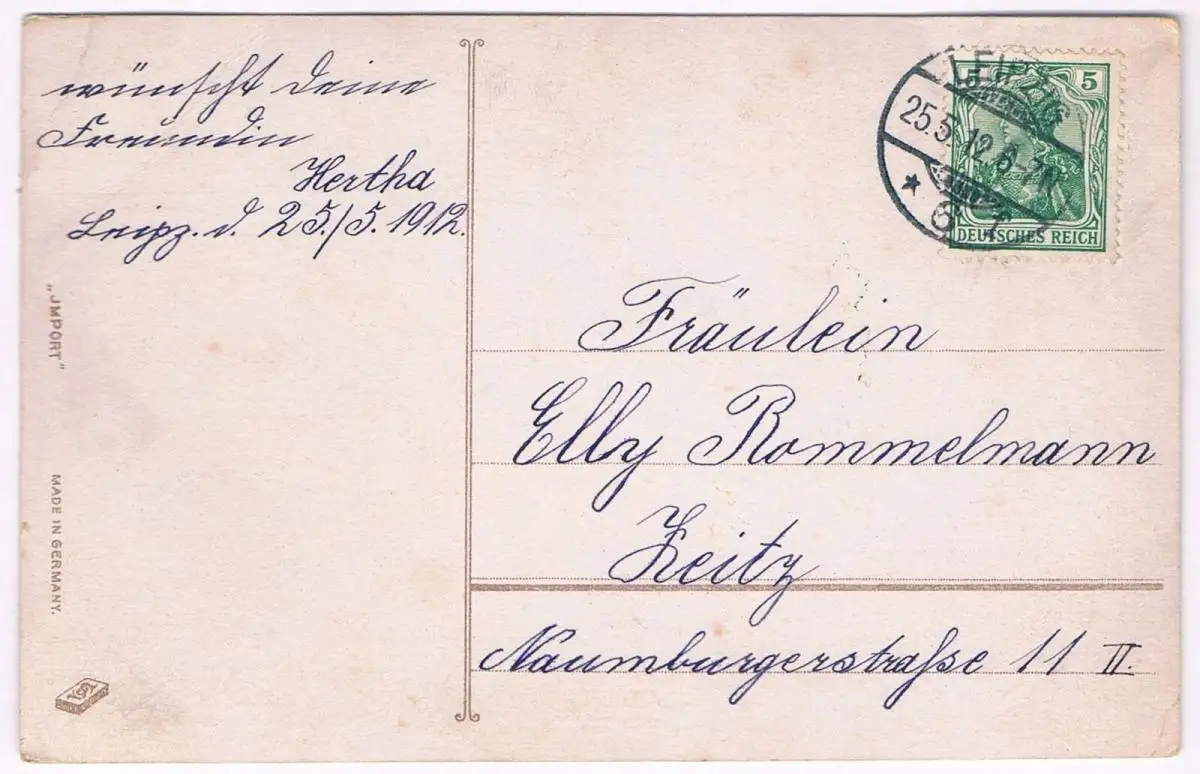 wünscht Deine
Freundin
Hertha
Leipz. d. 25./5. 1912.
"JMPORT"
MADE IN GERMANY.
LEIPZIG
25.5.12.6-7N.
* 6
5
DEUTSCHES REICH
Fräulein
Elly Rommelmann
Zeitz
Naumburgerstraße 11 II.